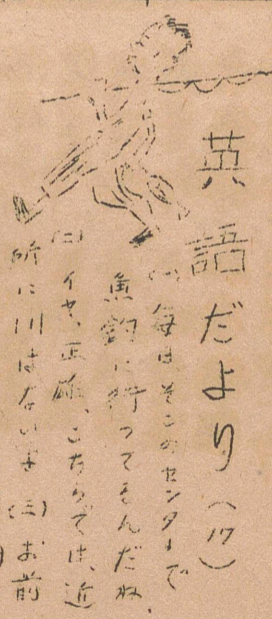 英語だより(17)
(一)毎日そこのセンターで
魚釣に行ってるんだね、
(二)イヤ、正確、こちらでは、近
所に川はないよ (三)お前